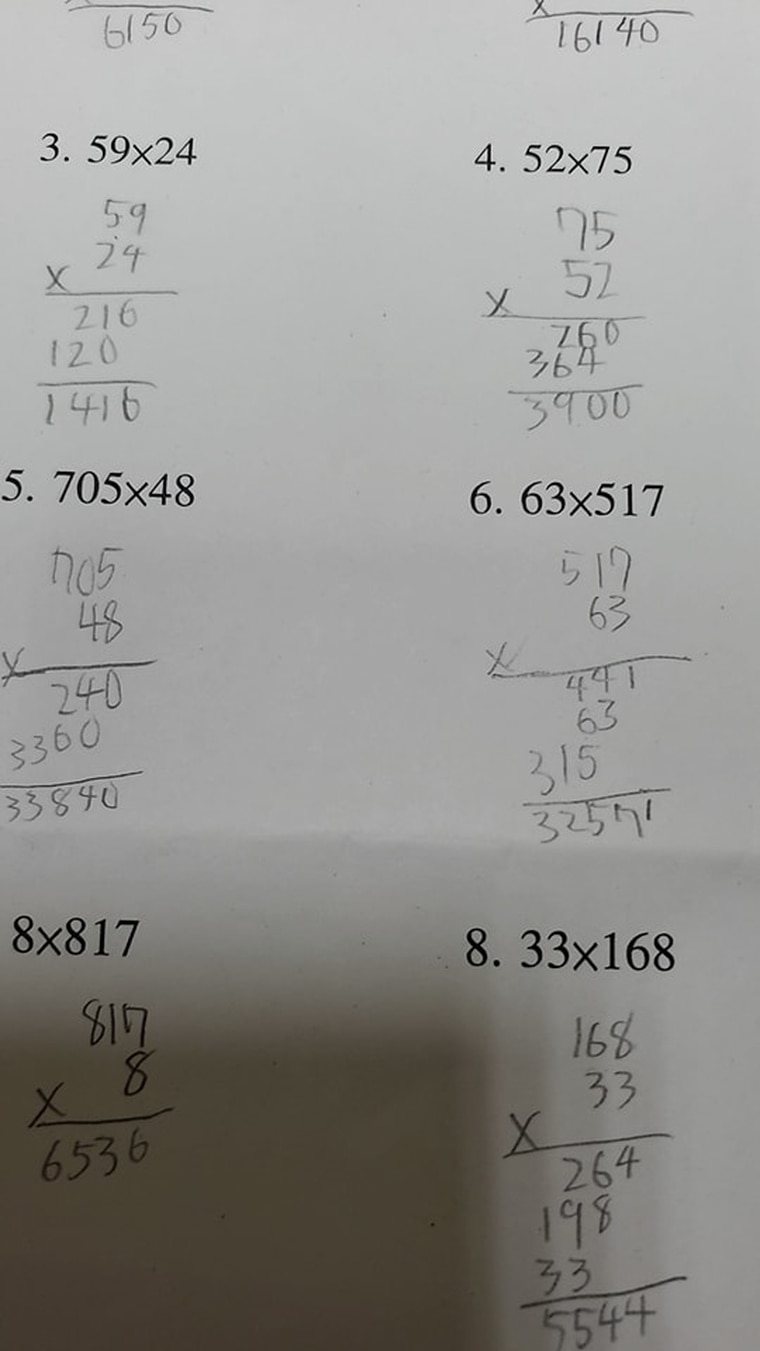 6150
x
16140
3. 59×24
59
24
x
216
120
1416
4. 52×75
75
52
x
260
364
3900
5. 705×48
705
48
x
240
3360
33840
6. 63×517
517
63
x
441
63
315
32571
8×817
817
x 8
6536
8. 33×168
168
33
x
264
198
33
5544